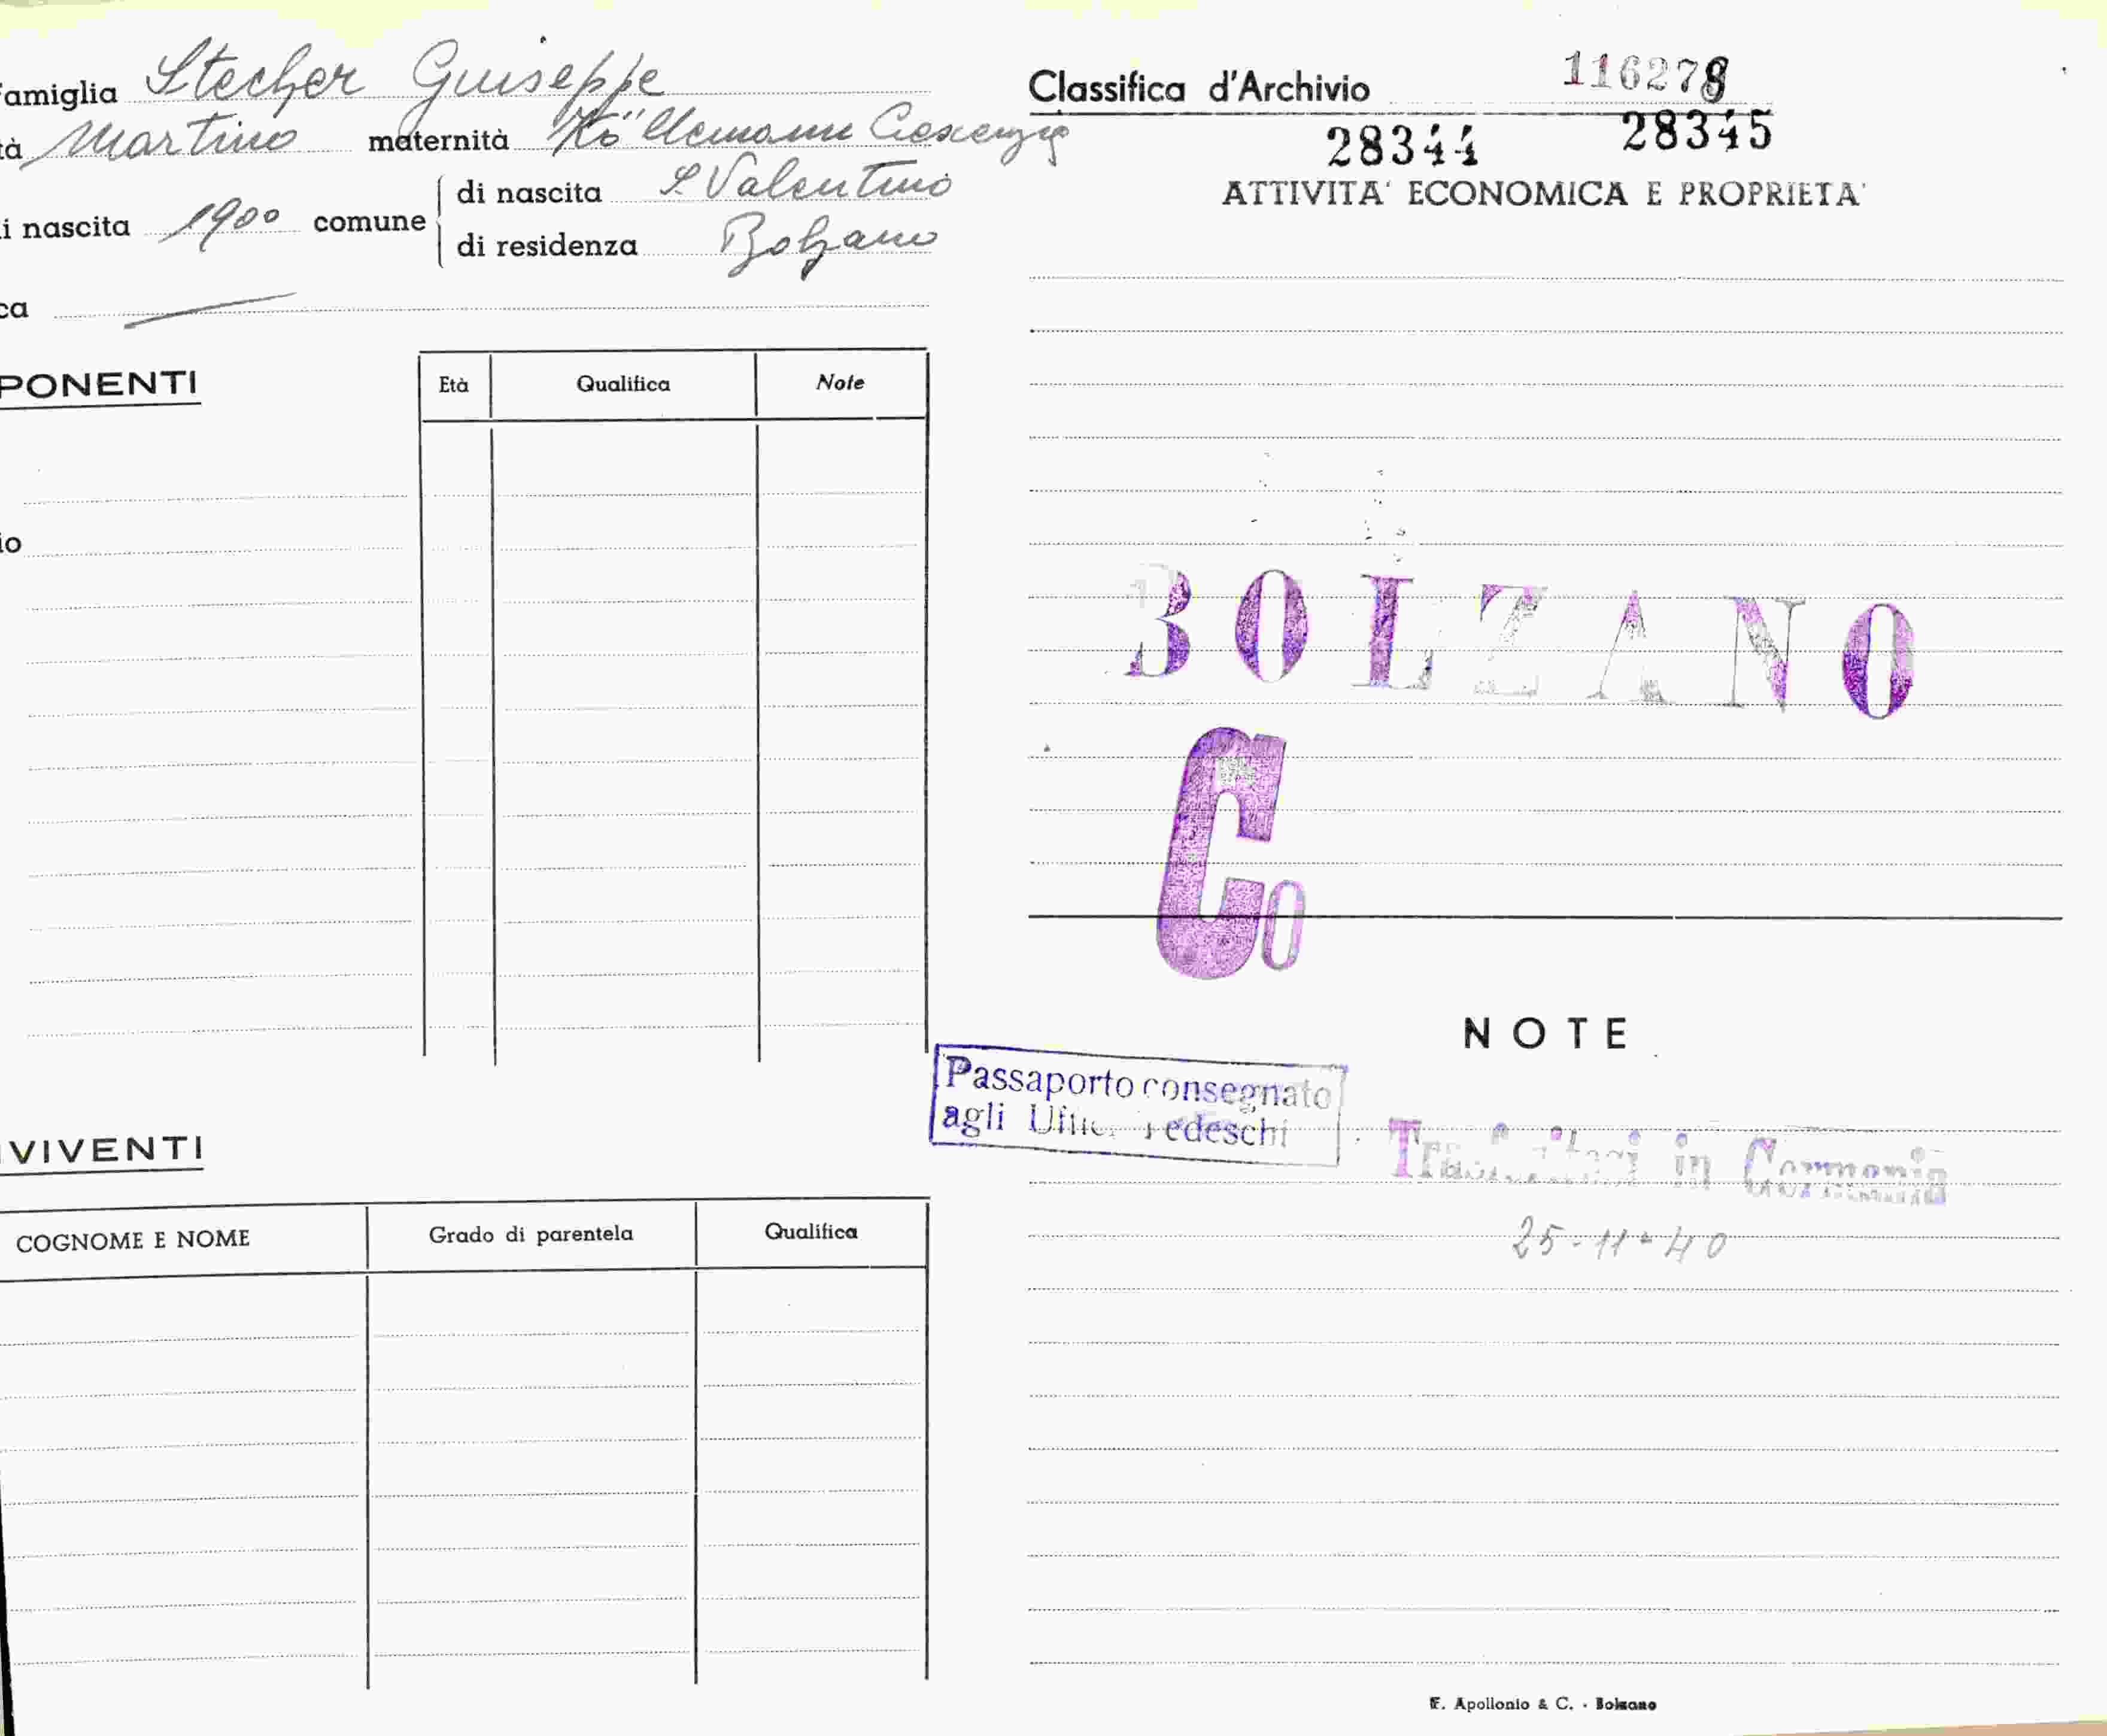 amiglia Stecher Guiseppe
tà Martino maternità Köllemann Crescenzia
i nascita 1900 comune di nascita S. Valentino
di residenza Bolzano
ca
PONENTI
Età Qualifica Note
io
VIVENTI
COGNOME E NOME Grado di parentela Qualifica
Classifica d'Archivio 116278
28344 28345
ATTIVITA' ECONOMICA E PROPRIETA'
BOLZANO
Co
NOTE
Passaporto consegnato
agli Tedeschi
in Germania
25-11-40
F. Apollonio & C. - Bolzano